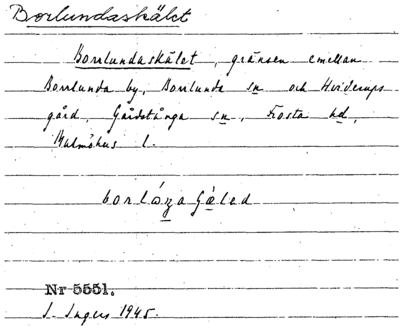 Borlundaskälet
Borrlundaskälet, gränsen emellan
Borrlunda by, Borrlunda sn och Hviderups
gård, Gårdstånga sn, Frosta hd,
Malmöhus l.
Nr 5551.
1945.